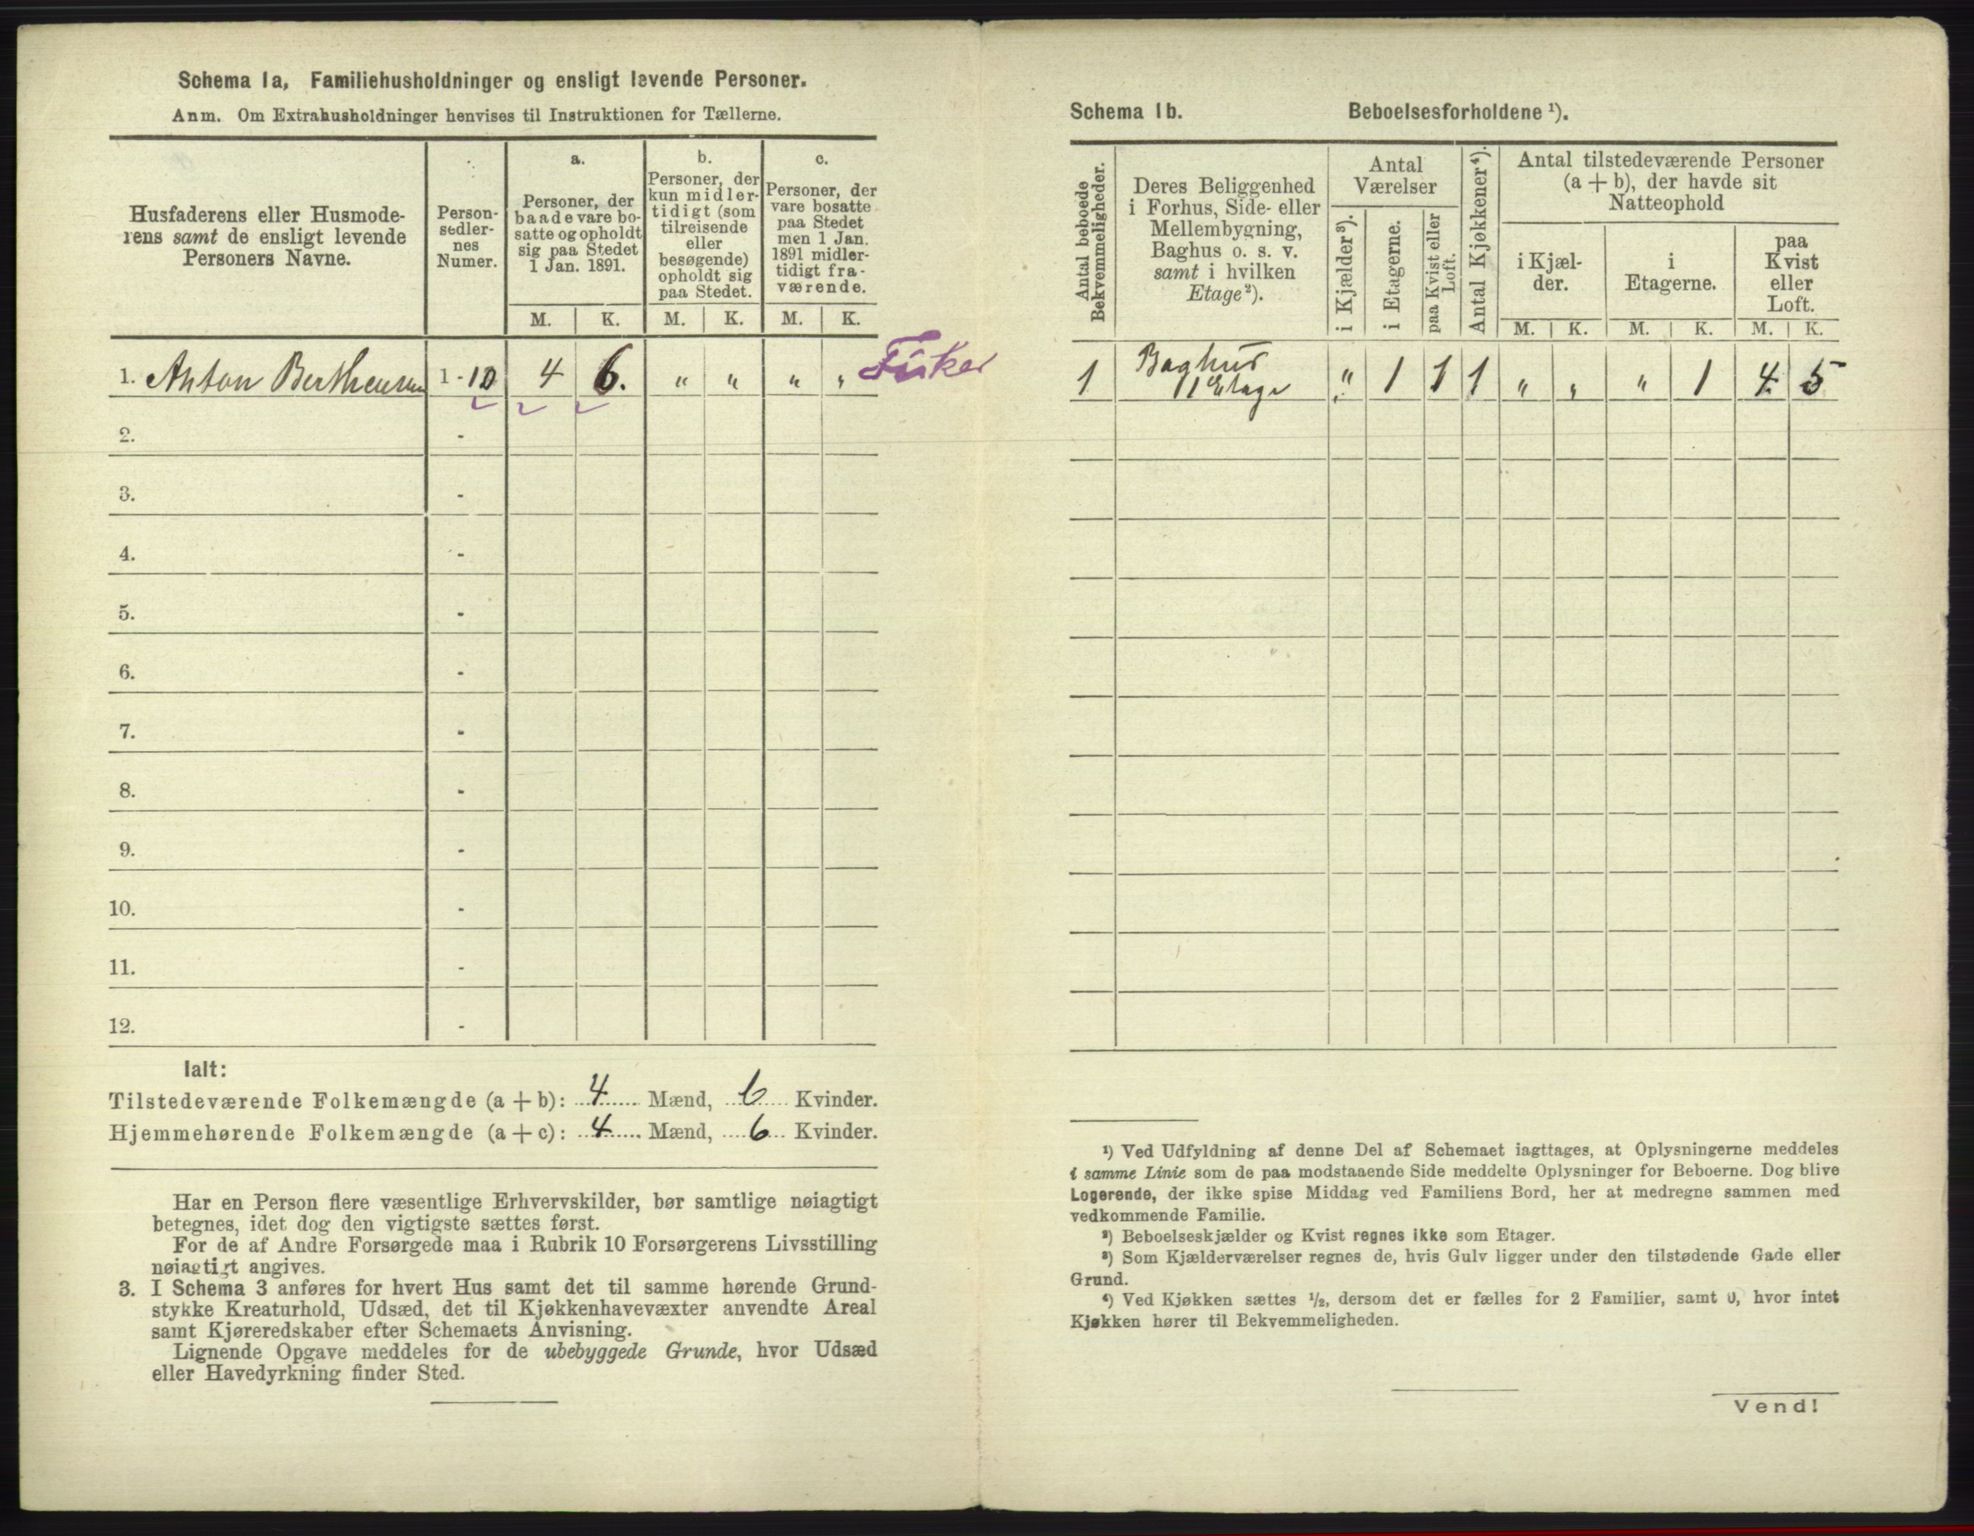 Schema 1a, Familiehusholdninger og ensligt levende Personer.
Anm. Om Extrahusholdninger henvises til Instruktionen for Tællerne.
Husfaderens eller Husmode-
rens samt de ensligt levende
Personers Navne.
Person-
sedler-
nes
Numer.
a.
Personer, der
baade vare bo-
satte og opholdt
sig paa Stedet
1 Jan. 1891.
b.
Personer, der
kun midler-
tidigt (som
tilreisende
eller
besøgende)
opholdt sig
paa Stedet.
c.
Personer, der
vare bosatte
paa Stedet
men 1 Jan.
1891 midler-
tidigt fra-
værende.
M. K. M. K. M. K.
1. Anton Berthensen 1 - 10 4 6. " " " " Fisker
2. -
3. -
4. -
5. -
6. -
7. -
8. -
9. -
10. -
11. -
12. -
Ialt:
Tilstedeværende Folkemængde (a + b): 4 Mænd, 6 Kvinder.
Hjemmehørende Folkemængde (a + c): 4 Mænd, 6 Kvinder.
Har en Person flere væsentlige Erhvervskilder, bør samtlige nøiagtigt
betegnes, idet dog den vigtigste sættes først.
For de af Andre Forsørgede maa i Rubrik 10 Forsørgerens Livsstilling
nøiagtigt angives.
3. I Schema 3 anføres for hvert Hus samt det til samme hørende Grund-
stykke Kreaturhold, Udsæd, det til Kjøkkenhavevæxter anvendte Areal
samt Kjøreredskaber efter Schemaets Anvisning.
Lignende Opgave meddeles for de ubebyggede Grunde, hvor Udsæd
eller Havedyrkning finder Sted.
Schema 1b. Beboelsesforholdene ¹).
Antal beboede
Bekvemmeligheder.
Deres Beliggenhed
i Forhus, Side- eller
Mellembygning,
Baghus o. s. v.
samt i hvilken
Etage²).
Antal
Værelser
i Kjælder³).
i Etagerne.
paa Kvist eller
Loft.
Antal Kjøkkener⁴).
Antal tilstedeværende Personer
(a + b), der havde sit
Natteophold
i Kjæl-
der.
i
Etagerne.
paa
Kvist
eller
Loft.
M. K. M. K. M. K.
1 Baghus
1 Etage " 1 1 1 " " " 1 4 5
¹) Ved Udfyldning af denne Del af Schemaet iagttages, at Oplysningerne meddeles
i samme Linie som de paa modstaaende Side meddelte Oplysninger for Beboerne. Dog blive
Logerende, der ikke spise Middag ved Familiens Bord, her at medregne sammen med
vedkommende Familie.
²) Beboelseskjælder og Kvist regnes ikke som Etager.
³) Som Kjælderværelser regnes de, hvis Gulv ligger under den tilstødende Gade eller
Grund.
⁴) Ved Kjøkken sættes ½, dersom det er fælles for 2 Familier, samt 0, hvor intet
Kjøkken hører til Bekvemmeligheden.
Vend!